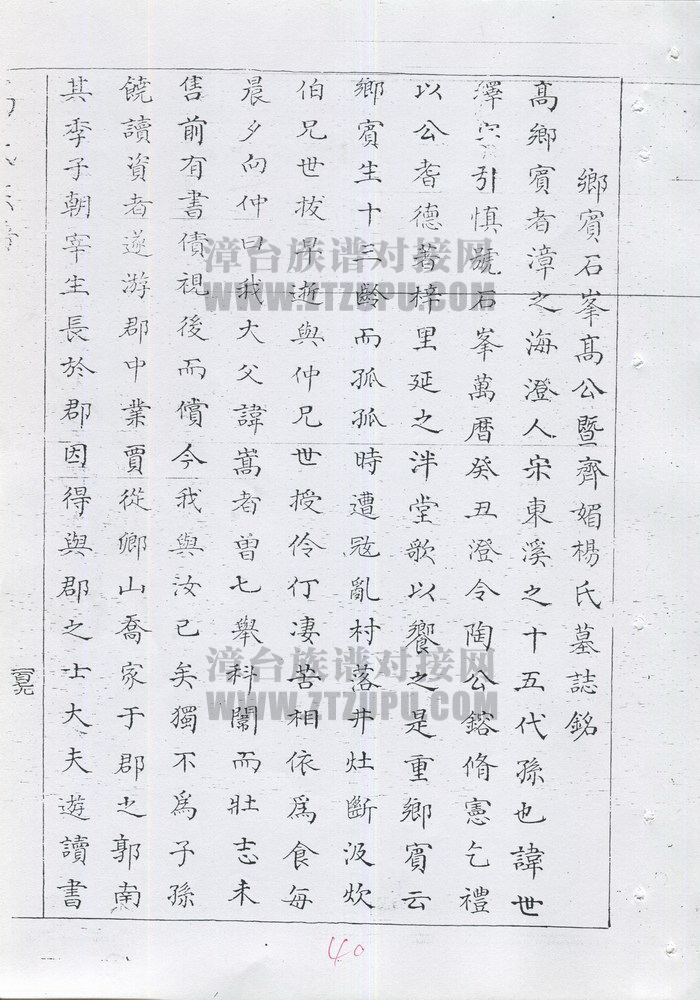 鄉賓石峯高公暨齊媚楊氏墓誌銘
高鄉賓者漳之海澄人宋東溪之十五代孫也諱世
澤字引慎號石峯萬曆癸丑澄令陶公鎔脩憲乞禮
以公耆德著梓里延之泮堂歌以饗之是重鄉賓云
鄉賓生十三齡而孤孤時遭寇亂村落井灶斷汲炊
伯兄世拔早逝與仲兄世授伶仃凄苦相依為食每
晨夕向仲曰我大父諱嵩者曾七舉科闈而壯志未
售前有書債視後而償今我與汝已矣獨不為子孫
饒讀資者遂游郡中業賈從鄉山喬家于郡之郭南
其季子朝宰生長於郡因得與郡之士大夫遊讀書
漳台族谱对接网
WWW.ZTZUPU.COM
漳台族谱对接网
WWW.ZTZUPU.COM
40